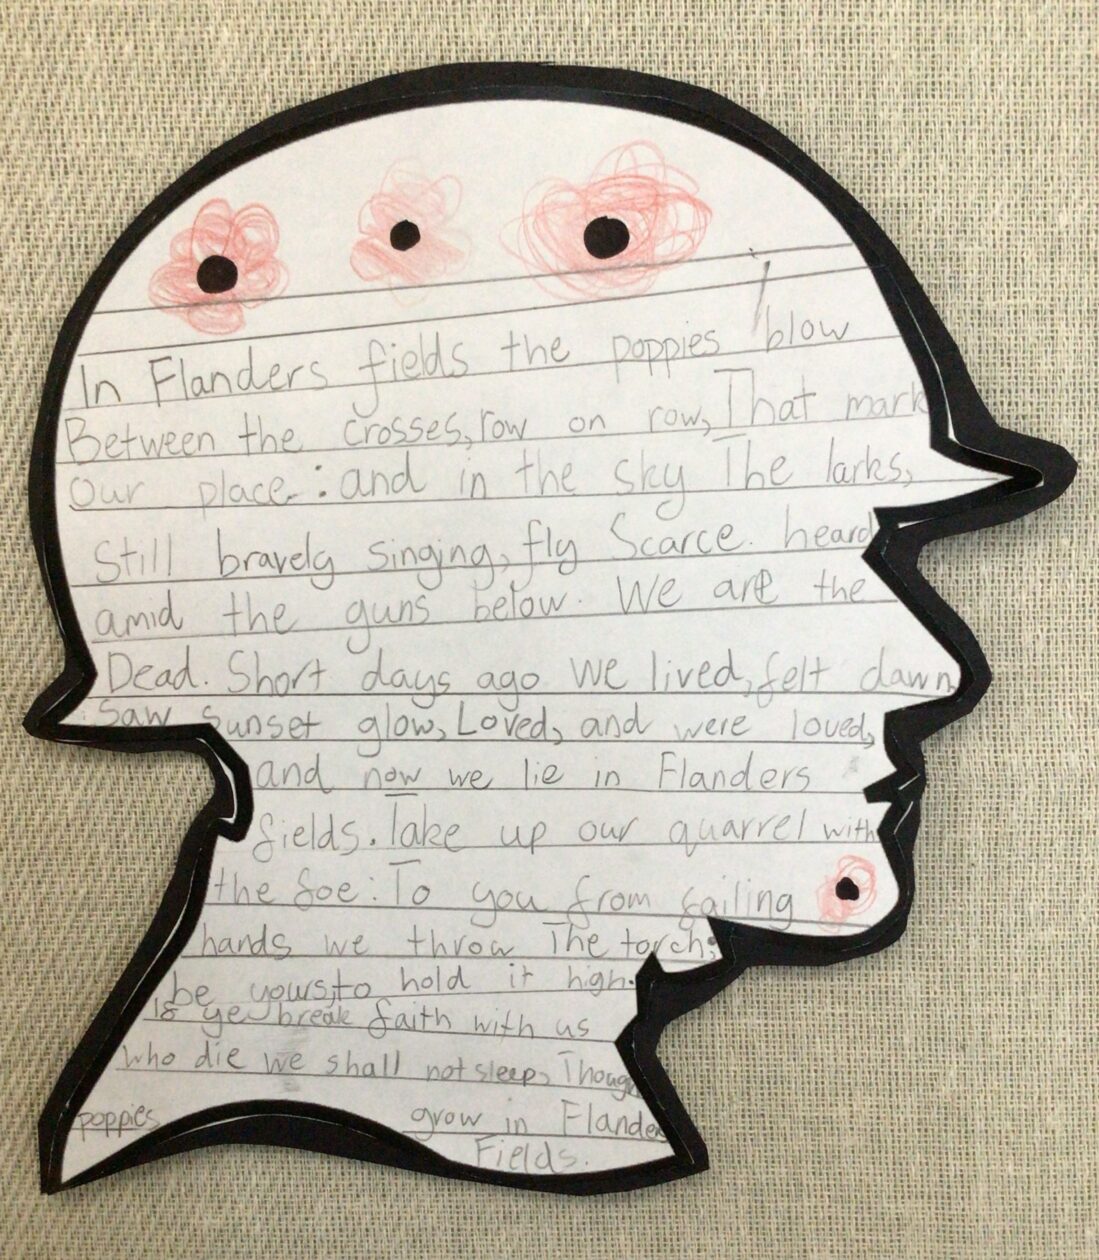 In Flanders fields the poppies blow
Between the crosses, row on row, That mark
our place. : and in the sky The larks,
Still bravely singing, fly Scarce. heard
amid the guns below. We are the
Dead. Short days ago We lived, felt dawn,
Saw Sunset glow, Loved, and were loved,
and now we lie in Flanders
fields. Take up our quarrel with
the foe: To you from failing
hands we throw The torch;
be yours, to hold it high.
If ye break faith with us
who die we shall not sleep, Though
poppies grow in Flanders
Fields.